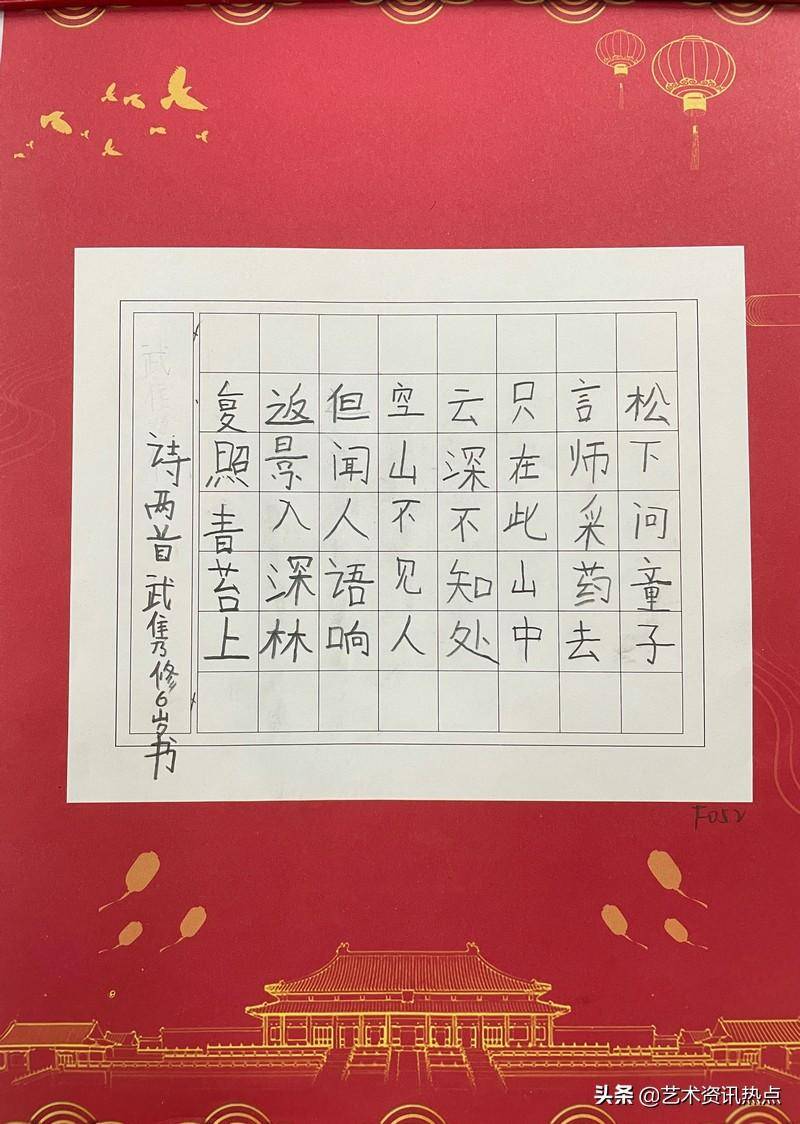 松下问童子
言师采药去
只在此山中
云深不知处
空山不见人
但闻人语响
返景入深林
复照青苔上
诗两首 武隽修6岁书
F052
头条 @艺术资讯热点